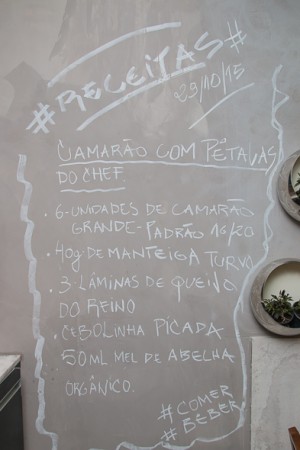 #RECEITAS#
29/10/15
CAMARÃO COM PÉTALAS
DO CHEF
• 6-UNIDADES DE CAMARÃO
GRANDE-PADRÃO 16/20
• 40g-DE MANTEIGA TURVA
• 3-LÂMINAS DE QUEIJO
DO REINO
• CEBOLINHA PICADA
• 50ML MEL DE ABELHA
ORGÂNICO.
#COMER
#BEBER